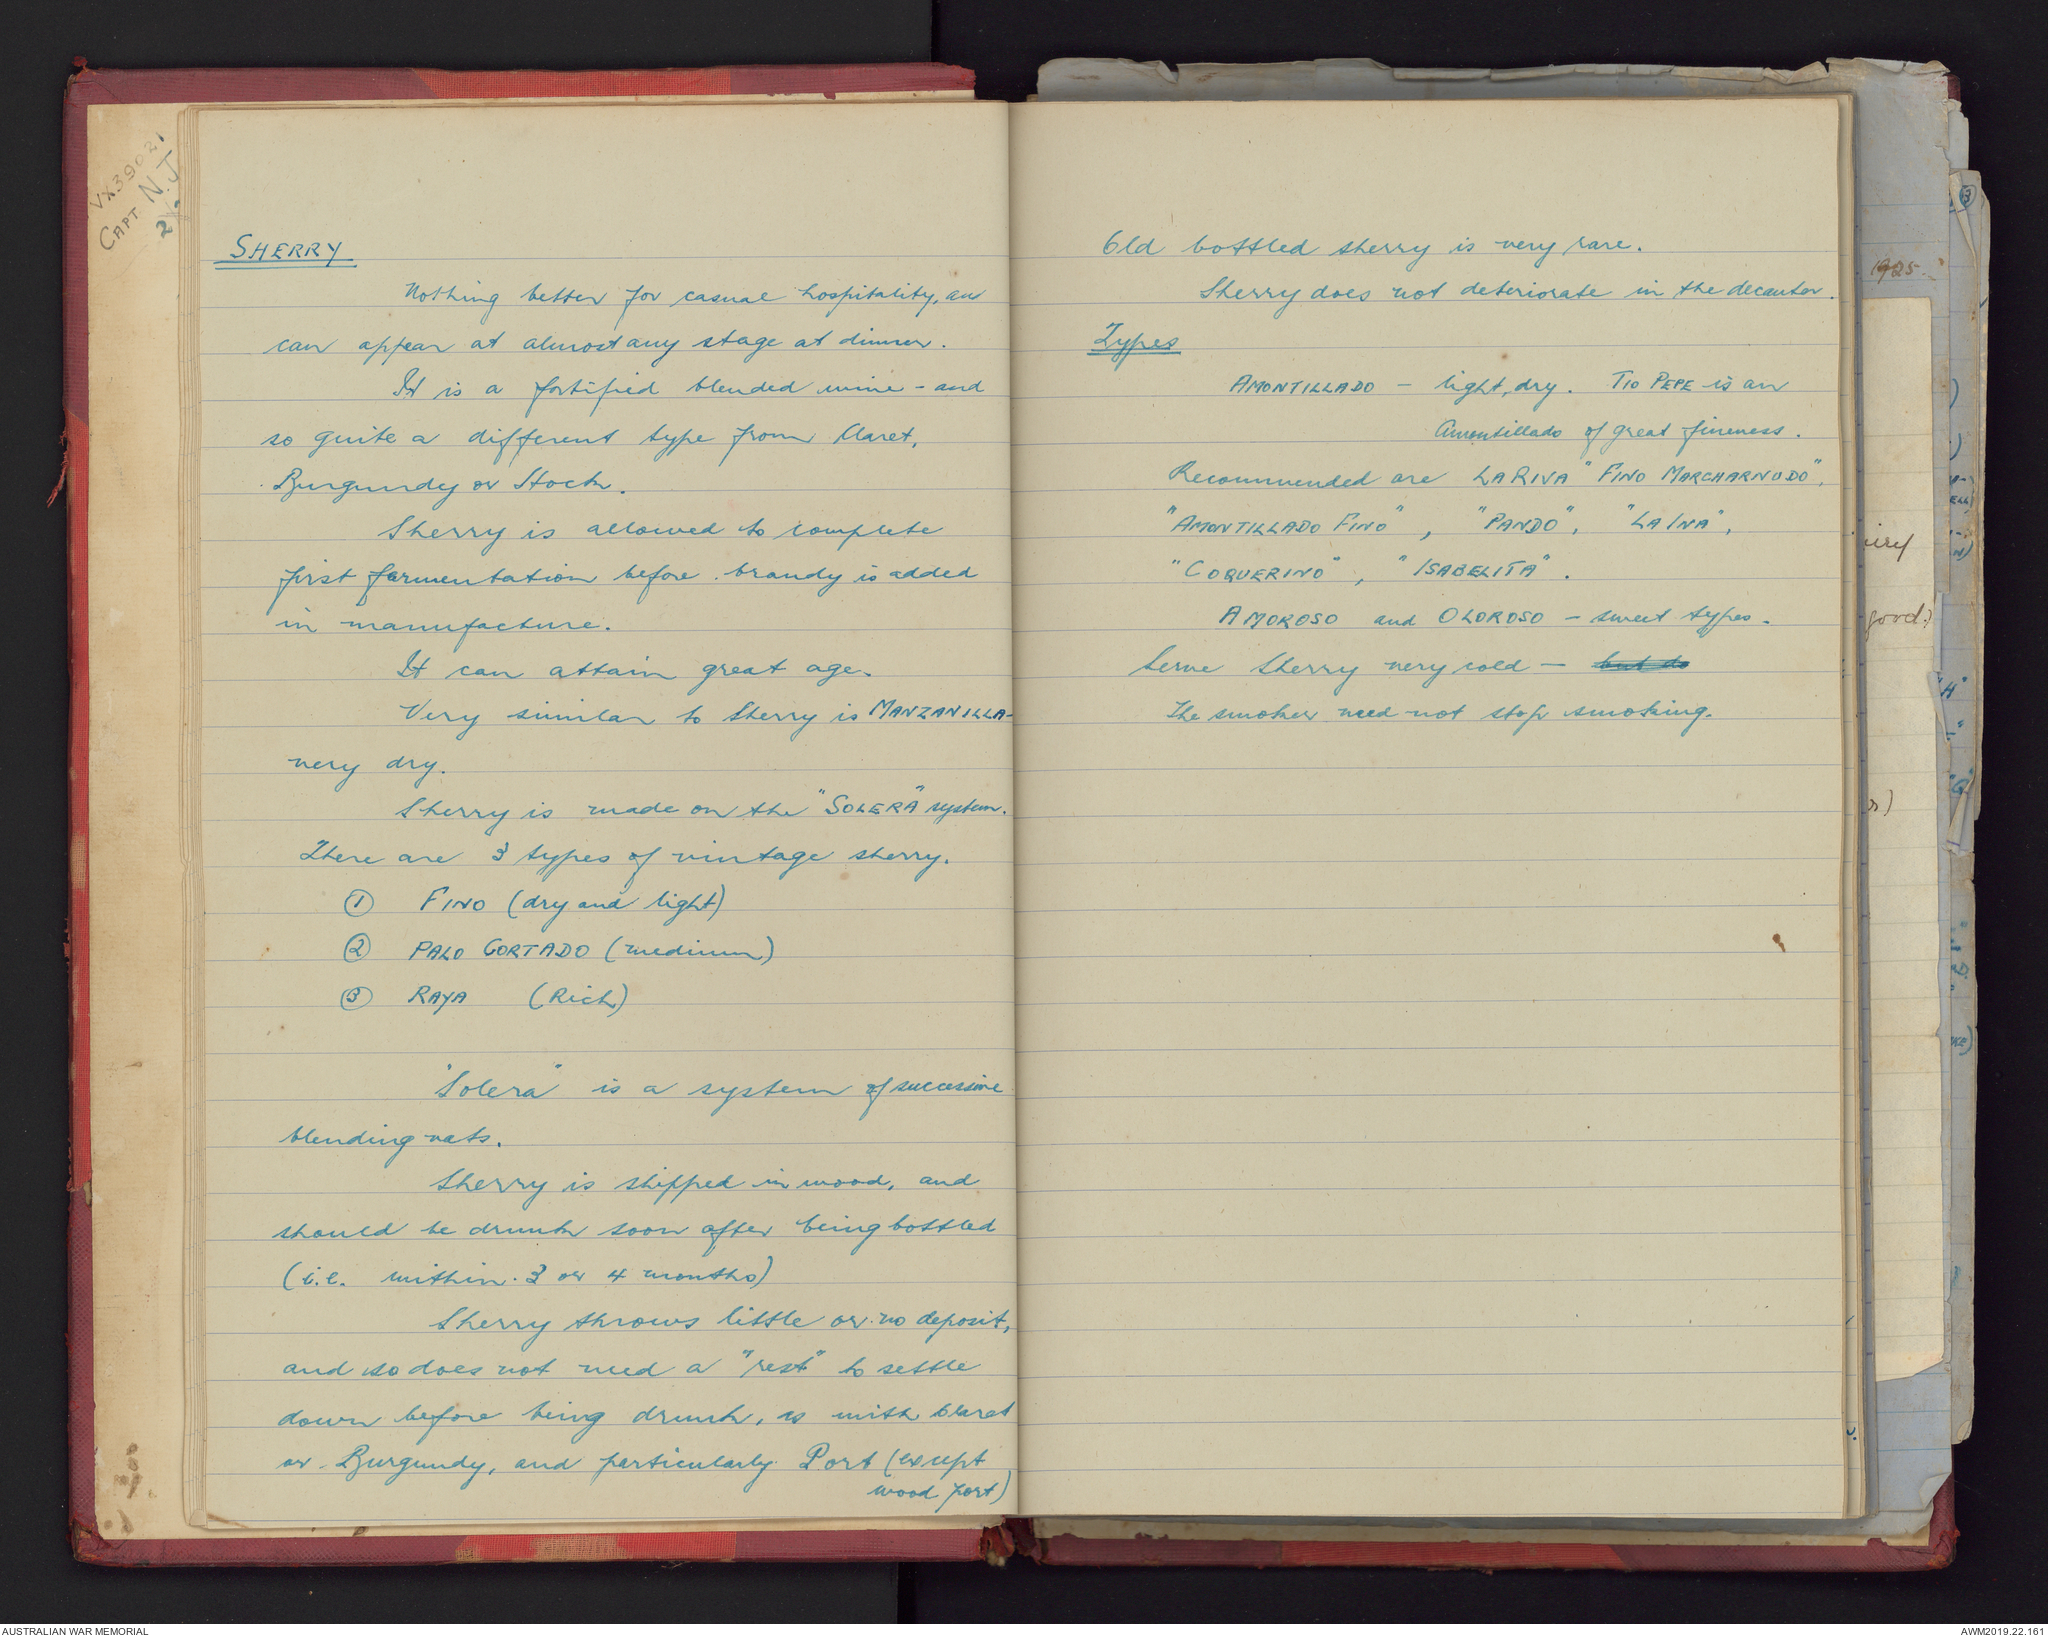 VX39021
CAPT N.J
2/
SHERRY
Nothing better for casual hospitality, an
can appear at almost any stage at dinner.
It is a fortified blended wine - and
so quite a different type from Claret,
Burgundy or Hock.
Sherry is allowed to complete
first fermentation before brandy is added
in manufacture.
It can attain great age.
Very similar to Sherry is MANZANILLA -
very dry.
Sherry is made on the "SOLERA" system.
There are 3 types of vintage sherry.
① FINO (dry and light)
② PALO CORTADO (medium)
③ RAYA (Rich)
"Solera" is a system of successive
blending vats.
Sherry is shipped in wood, and
should be drunk soon after being bottled
(i.e. within 3 or 4 months)
Sherry throws little or no deposit,
and so does not need a "rest" to settle
down before being drunk, as with Claret
or Burgundy, and particularly Port (except
wood port)
Old bottled sherry is very rare.
Sherry does not deteriorate in the decanter.
Types
AMONTILLADO - light, dry. TIO PEPE is an
Amontillado of great fineness.
Recommended are LA RIVA "FINO MARCHARNUDO",
"AMONTILLADO FINO", "PANDO", "LA INA",
"COQUERINO", "ISABELITA".
AMOROSO and OLOROSO - sweet types.
Serve Sherry very cold - but do
The smoker need not stop smoking.
1925
good.)
AUSTRALIAN WAR MEMORIAL
AWM2019.22.161